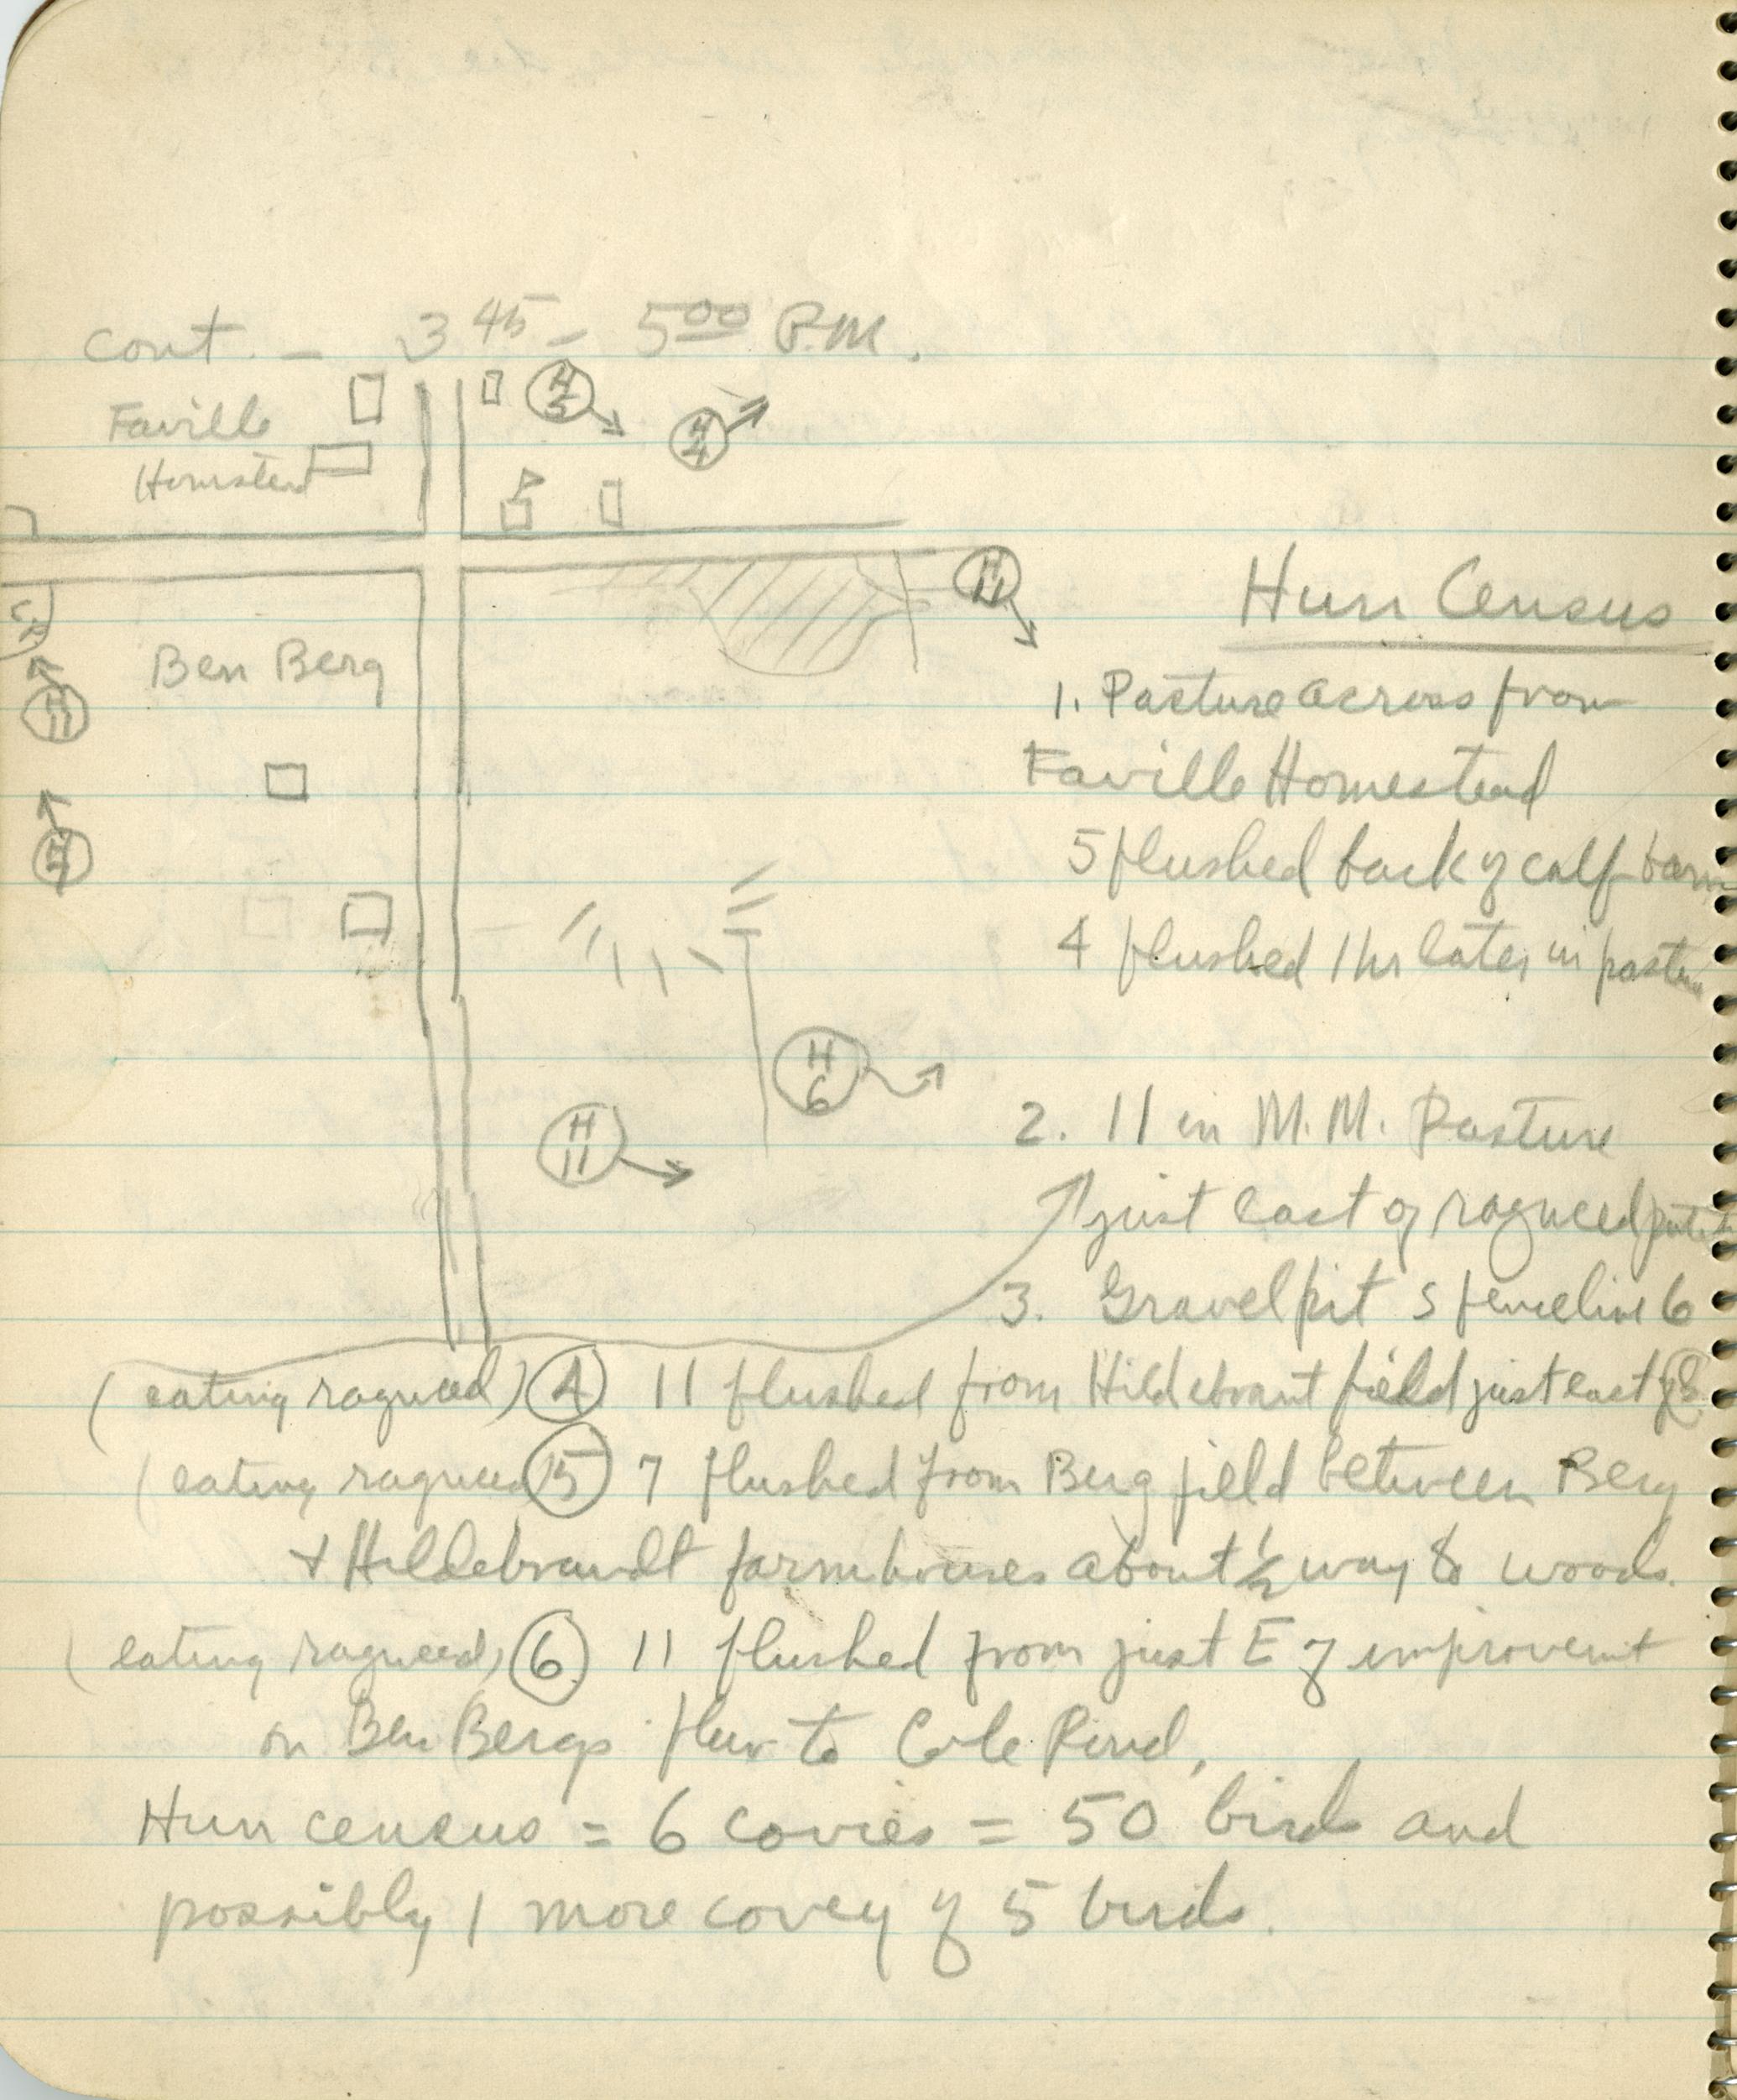 cont. – 3 45 – 5 00 P.M.
Faville
Homestead
H
5
H
4
H
11
Ben Berg
H
11
H
7
H
6
H
11
Hun Census
1. Pasture across from
Faville Homestead
5 flushed back of calf barn
4 flushed 1 hr later in pasture
2. 11 in M.M. Pasture
just east of ragweed patch
3. Gravel pit S fenceline 6
(eating ragweed) 4 11 flushed from Hildebrant field just east of
(eating ragweed 5) 7 flushed from Berg field between Berg
+ Hildebrandt farmhouses about 1/2 way to woods.
(eating ragweed) 6 11 flushed from just E of improvemt
on Ben Bergs flew to Cole Pond.
Hun census = 6 covies = 50 birds and
possibly 1 more covey of 5 birds.